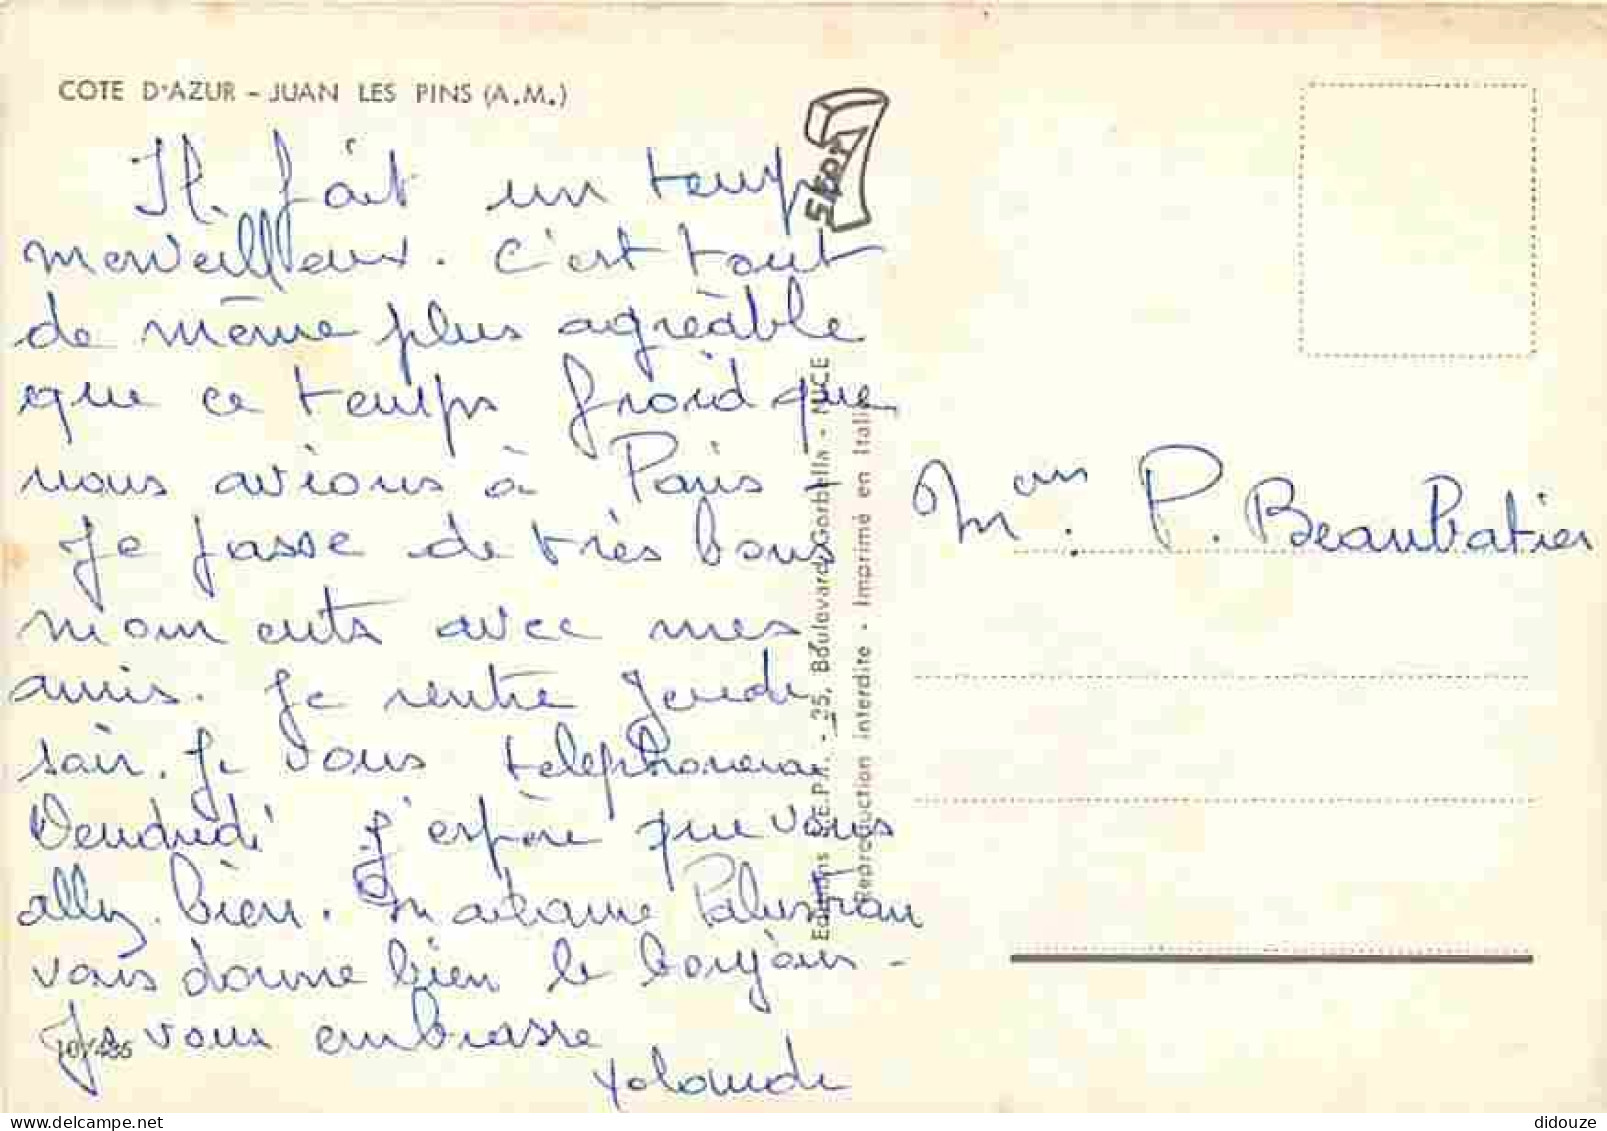 COTE D'AZUR - JUAN LES PINS (A.M.)
Il fait un temps
merveilleux. C'est tout
de même plus agréable
que ce temps froid que
nous avions à Paris -
Je passe de très bons
moments avec mes
amis. Je rentre Jeudi
soir. Je vous telephonerai
Vendredi j'espère que vous
allez bien. Madame
vous donne bien le bonjour -
Je vous embrasse
Yolande
107435
SEPT
7
Editions S.E.P.T. - 25, Boulevard Gorbella - NICE
Reproduction interdite - Imprimé en Italie
P. Beaubatier
didouze